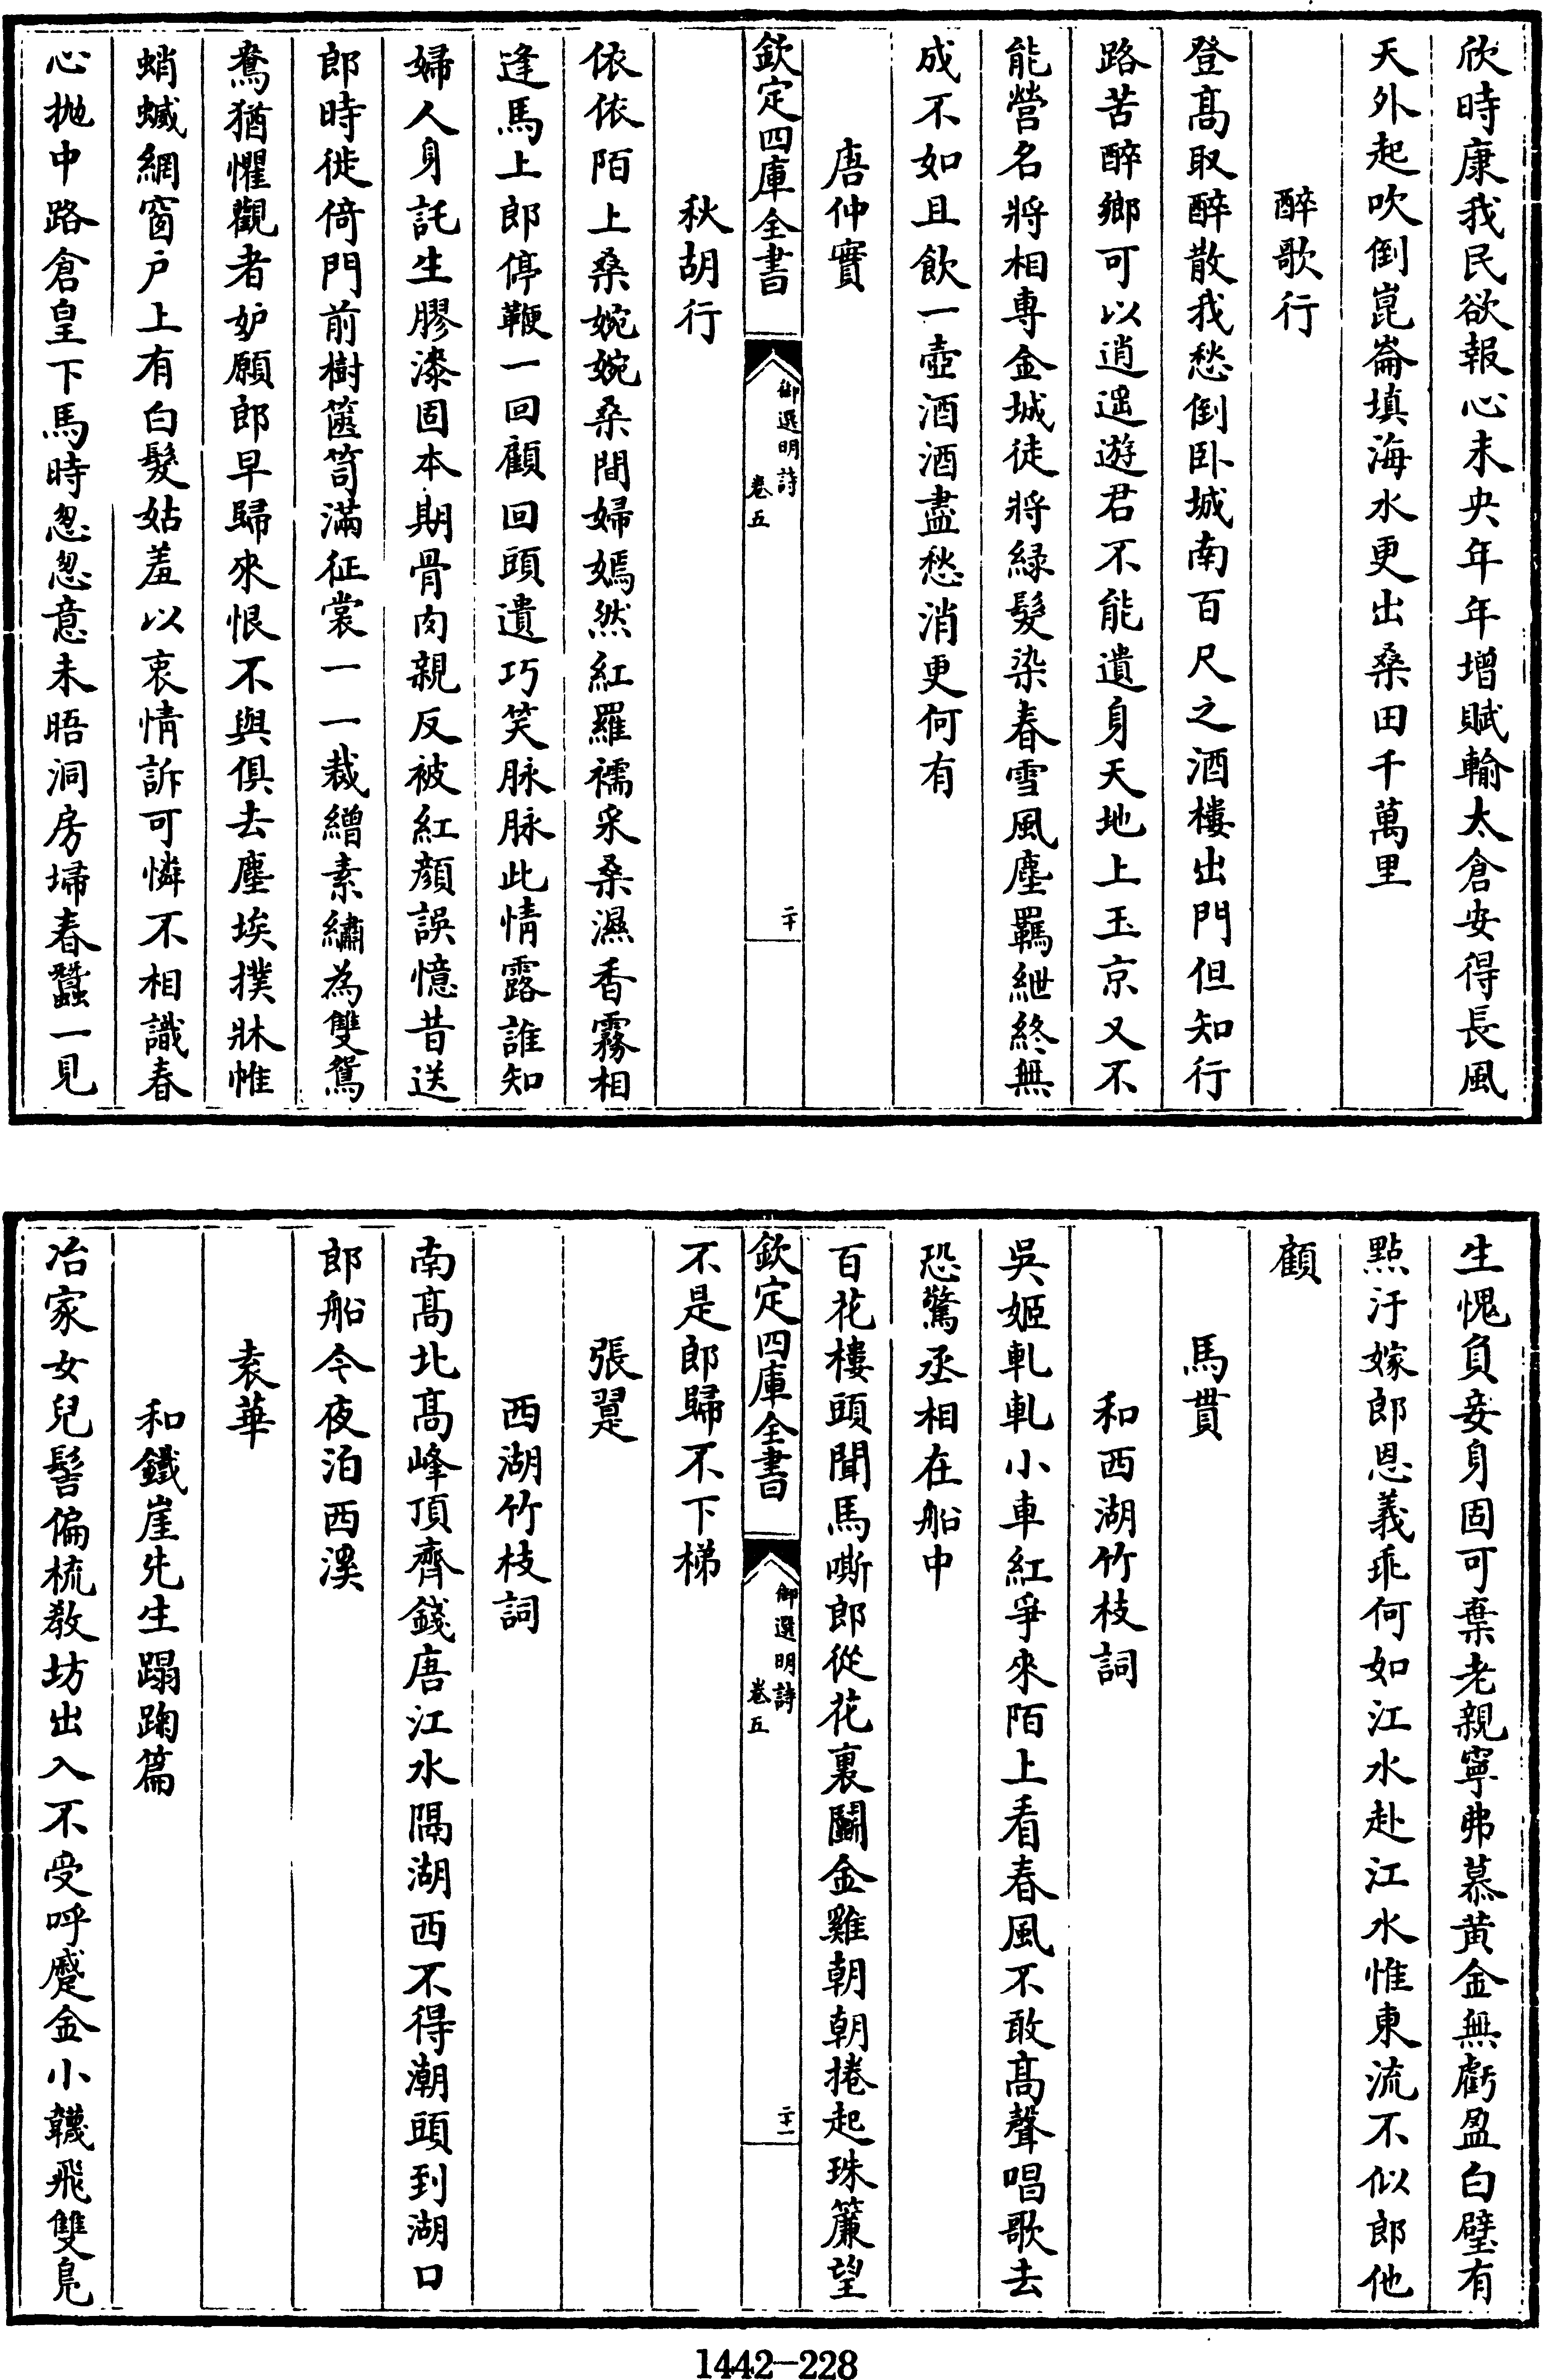 欣時康我民欲報心未央年年增賦輸太倉安得長風
天外起吹倒崑崙填海水更出桑田千萬里
醉歌行
登髙取醉散我愁倒卧城南百尺之酒樓出門但知行
路苦醉鄉可以逍遥遊君不能遺身天地上玉京又不
能營名將相専金城徒將緑髮染春雪風塵羈紲終無
成不如且飲一壺酒酒盡愁消更何有
唐仲實
欽定四庫全書
御選明詩
卷五
二十
秋胡行
依依陌上桑婉婉桑間婦嫣然紅羅襦采桑濕香霧相
逢馬上郎停鞭一回顧回頭遺巧笑脉脉此情露誰知
婦人身託生膠漆固本期骨肉親反被紅顔誤憶昔送
郎時徙倚門前樹篋笥滿征裳一一裁繒素繡為雙鴛
鴦猶懼觀者妒願郎早歸來恨不與俱去塵埃撲牀帷
蛸蟙網窗戸上有白髮姑羞以衷情訴可憐不相識春
心抛中路倉皇下馬時怱怱意未晤洞房埽春蠶一見
生愧負妾身固可棄老親寧弗慕黄金無虧盈白璧有
點汙嫁郎恩義乖何如江水赴江水惟東流不似郎他
顧
馬貫
和西湖竹枝詞
吳姬軋軋小車紅爭來陌上看春風不敢髙聲唱歌去
恐驚丞相在船中
百花樓頭聞馬嘶郎從花裏鬭金雞朝朝捲起珠簾望
欽定四庫全書
御選明詩
卷五
二十一
不是郎歸不下梯
張翨
西湖竹枝詞
南髙北髙峰頂齊錢唐江水隔湖西不得潮頭到湖口
郎船今夜泊西溪
袁華
和鐵崖先生蹋踘篇
冶家女兒髻偏梳教坊出入不受呼蹙金小韈飛雙鳬
1442-228